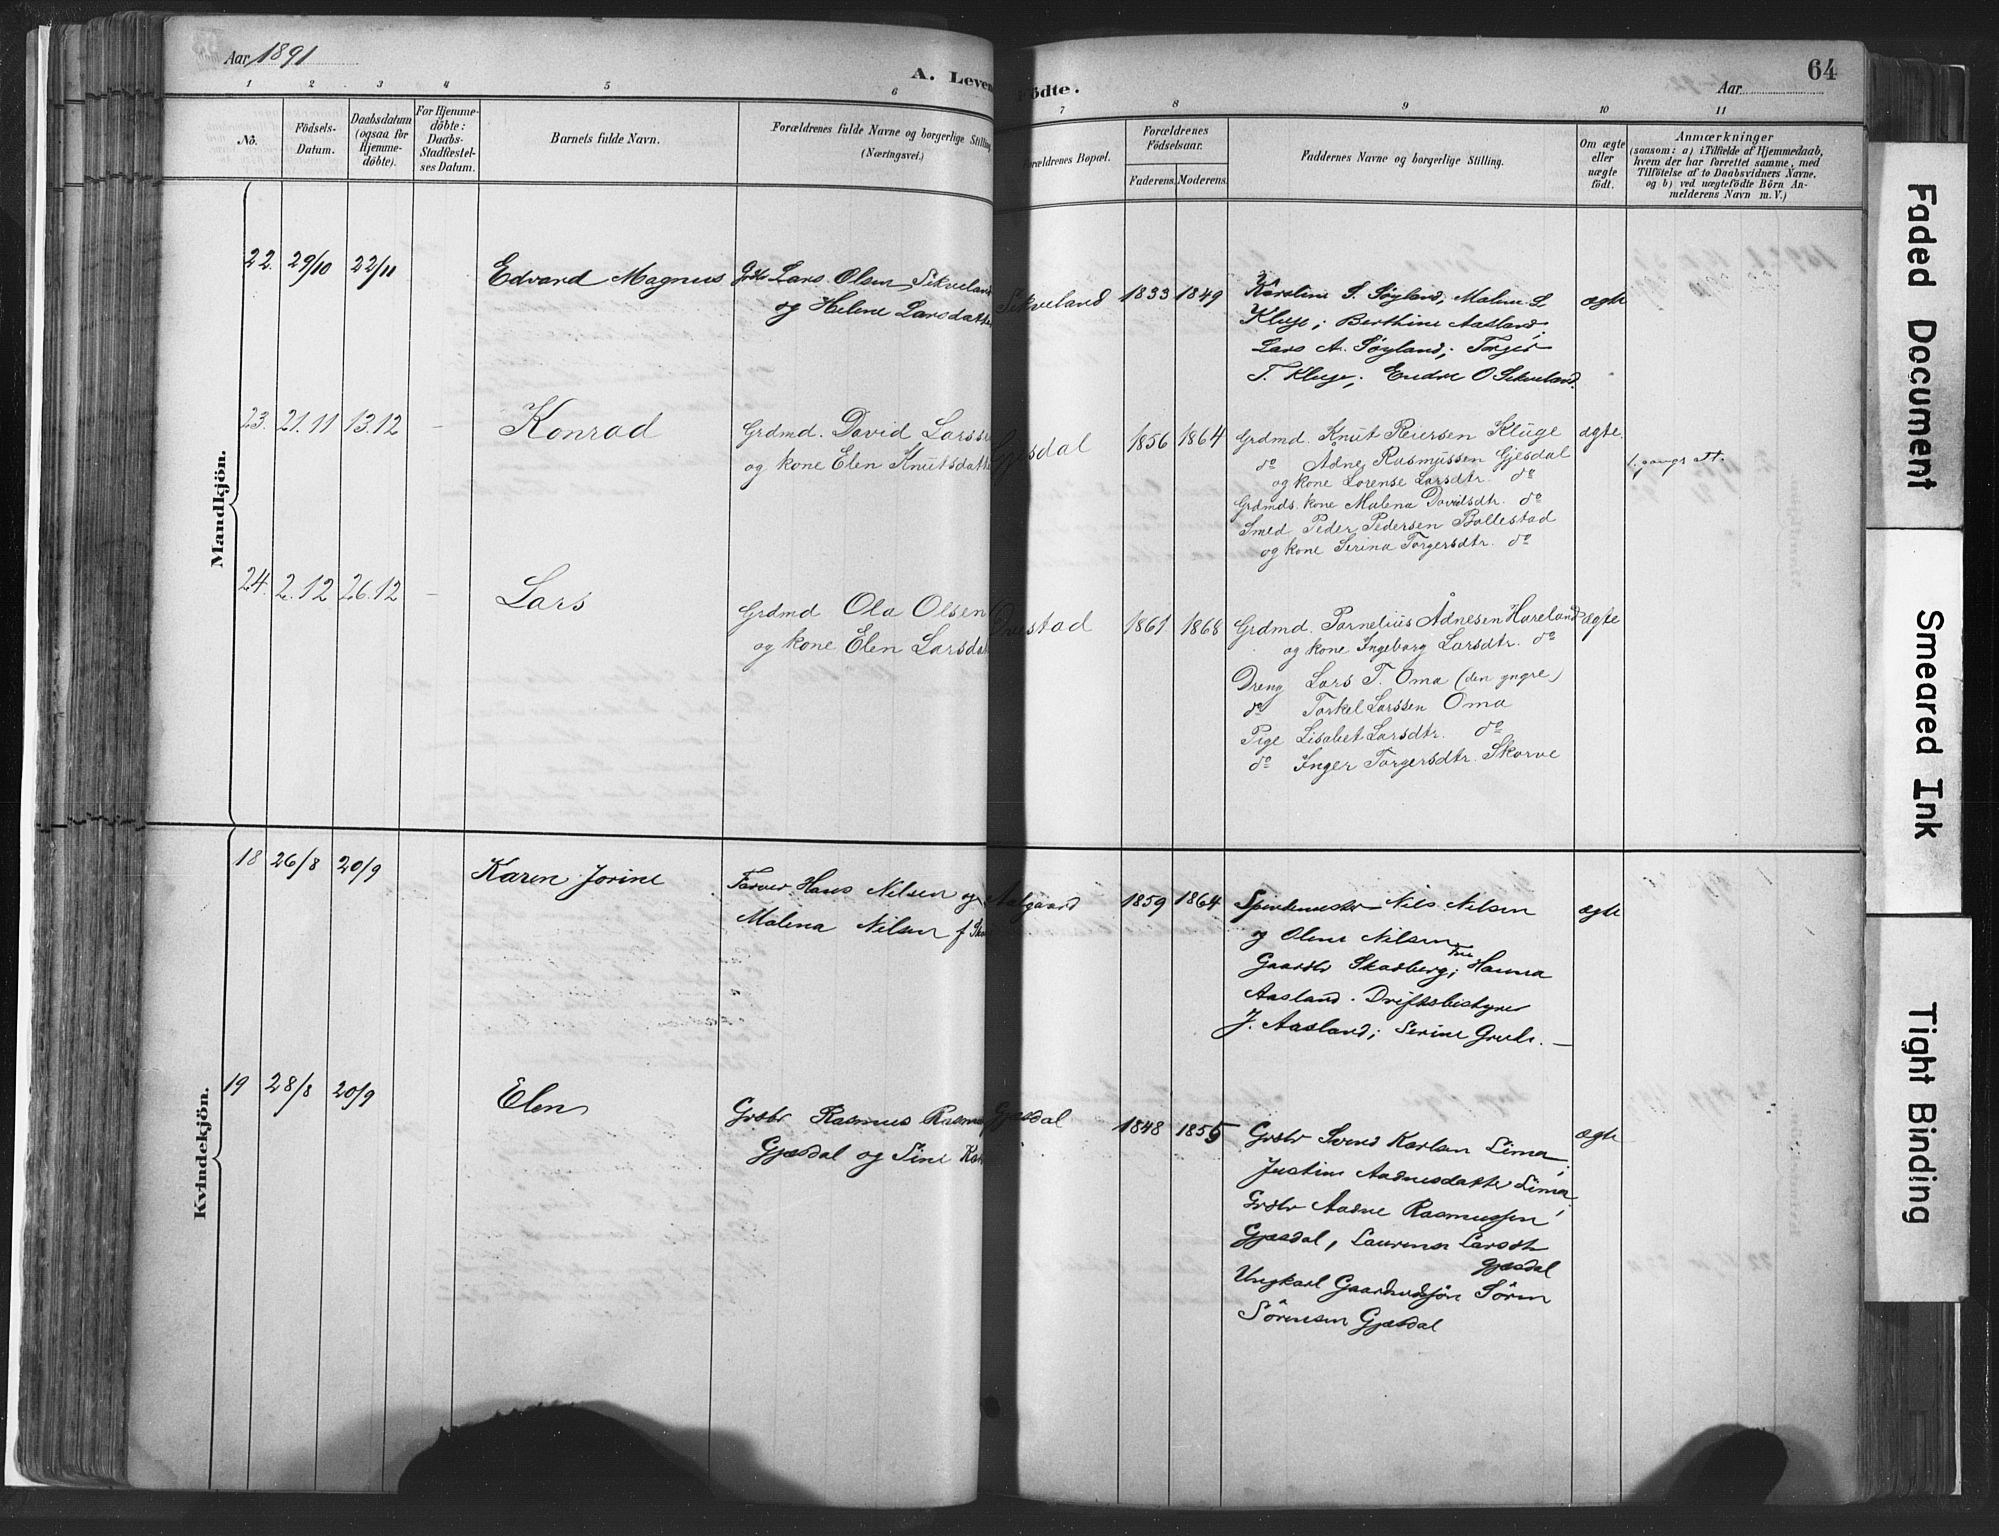 Aar 1891
A. Leven
födte.
Aar
64
1 2 3 4 5 6 7 8 9 10 11
No.
Födsels-
Datum.
Daabsdatum
(ogsaa for
Hjemme-
döbte).
For Hjemme-
döbte:
Daabs-
Stadfæstel-
ses Datum.
Barnets fulde Navn.
Forældrenes fulde Navne og borgerlige Stilling
(Næringsvei.)
Forældrenes Bopæl.
Forældrenes
Födselsaar.
Faderens. Moderens.
Faddernes Navne og borgerlige Stilling.
Om ægte
eller
uægte
födt.
Anmærkninger
(saasom: a) i Tilfælde af Hjemmedaab,
hvem der har forrettet samme, med
Tilföielse af to Daabsvidners Navne,
og b) ved uægtefödte Börn An-
melderens Navn m. V.)
Mandkjön.
22. 29/10 22/11 Edvard Magnus
Grdbr Lars Olsen Sikveland
og Helene Larsdatter
Sikveland 1833 1849
Karoline S. Søyland, Malene L.
Kluge; Berthine Aasland;
Lars A. Søyland; Torger
T. Kluge; Endre O Sikveland.
ægte
23. 21.11 13.12 - Konrad
Grdmd. David Larssen
og kone Elen Knutsdatter
Gjesdal 1856 1864
Grdmd. Knut Reiersen Kluge
do Adne Rasmussen Gjesdal
og kone Lorense Larsdtr. do
Grdmds. kone Malena Davidsdtr. do
Smed Peder Pedersen Bollestad
og kone Serina Torgersdtr. do
ægte.
24. 2.12 26.12 - Lars
Grdmd Ola Olsen
og kone Elen Larsdat
Ovestad 1861 1868
Grdmd. Tornelius Ådnesen Haveland
og kone Ingeborg Larsdtr. do
Dreng Lars T. Oma (den yngre)
do Torkel Larssen Oma
Pige Lisabet Larsdtr. do
do Inger Torgersdtr. Skorve
ægte
Kvindekjön.
18 26/8 20/9 Karen Jorine
Farver Hans Nilsen og
Malena Nilsen f.
Aalgaard 1859 1864
Spindemester Nils Nilsen
og Olene Nilsen
Gaardbr Skadberg; Fru Hanna
Aasland. Driftsbestyrer
J. Aasland; Serine Grude. —
ægte
19 28/8 20/9 Elen
Grdbr Rasmus Rasmus
Gjesdal og Sine
Gjesdal 1848 1855
Grdbr Svend Karlsen Lima;
Justine Aadnesdatter Lima,
Grdbr Aadne Rasmussen
Gjesdal, Laurense Larsdtr
Gjesdal
Ungkarl Gaardmandssøn Sören
Sörensen Gjesdal
ægte
Faded Document
Smeared Ink
Tight Binding